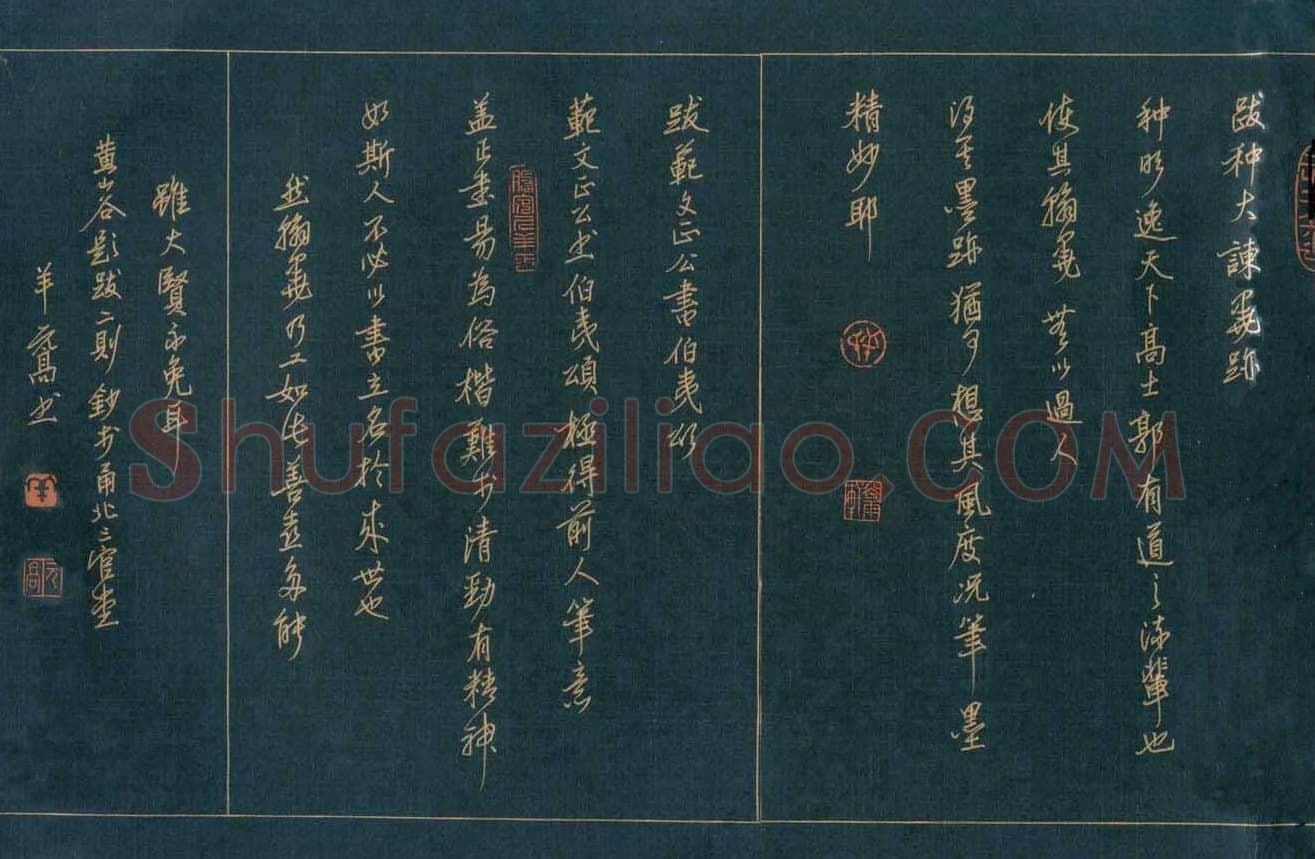 跋种大諫筆跡
种明逸天下高士郭有道之流輩也
使其翰筆無以過人
得其墨跡猶可想其風度况筆墨
精妙耶
跋範文正公書伯夷頌
範文正公书伯夷頌極得前人筆意
盖正書易為俗楷難於清勁有精神
如斯人不必以書立名於來世也
然翰筆乃工如此善蓋多能
雖大賢不免耳
黄山谷題跋二则鈔书甬北三官堂
羊元高书
Shufaziliao.COM